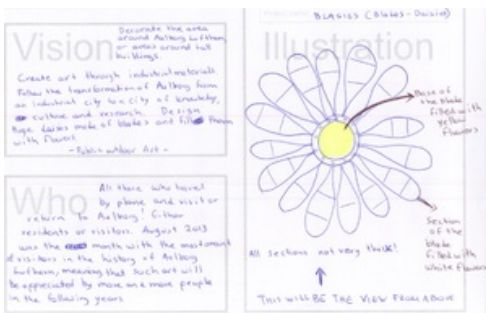 Vision
Decorate the area
around Aalborg Lufthavn
or areas around tall
buildings.
Create art through industrial materials.
Follow the transformation of Aalborg from
an industrial city to a city of knowledge,
culture and research. Design
huge daisies made of blades and fill them
with flowers.
- Public outdoor Art -
Who
All those who travel
by plane and visit or
return to Aalborg! Either
residents or visitors. August 2013
was the month with the most amount
of visitors in the history of Aalborg
Lufthavn, meaning that such art will
be appreciated by more and more people
in the following years.
BLASIES (Blades - Daisies)
Illustration
Base of
the blade
filled with
yellow
flowers
Section
of the
blade
filled with
white flowers
All sections not very thick!
THIS WILL BE THE VIEW FROM ABOVE